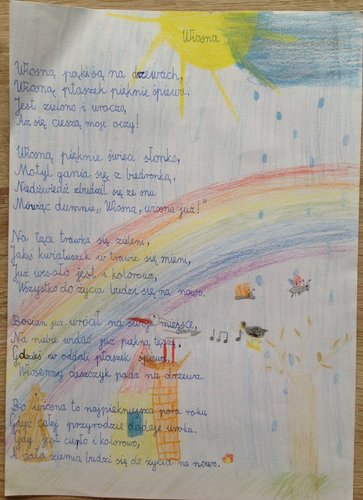 Wiosna
Wiosną pąki są na drzewach,
Wiosną ptaszek pięknie śpiewa.
Jest zielono i uroczo,
Aż się cieszą moje oczy!
Wiosną pięknie świeca słonko,
Motyl gania się z biedronką,
Niedźwiedź zbudził się ze snu
Mówiąc dumnie, "Wiosna, wiosna już!"
Na łące trawka się zieleni,
Jakiś kwiatuszek w trawie się mieni,
Już wesoło jest i kolorowo,
Wszystko do życia budzi się na nowo.
Bocian już wrócił na swoje miejsce,
Na niebie widać już piękną tęczę,
Gdzieś w oddali ptaszek śpiewa,
Wiosenny deszczyk pada na drzewa.
Bo wiosna to najpiękniejsza pora roku
Gdyż całej przyrodzie dodaje uroku.
Gdy jest ciepło i kolorowo,
A cała ziemia budzi się do życia na nowo.